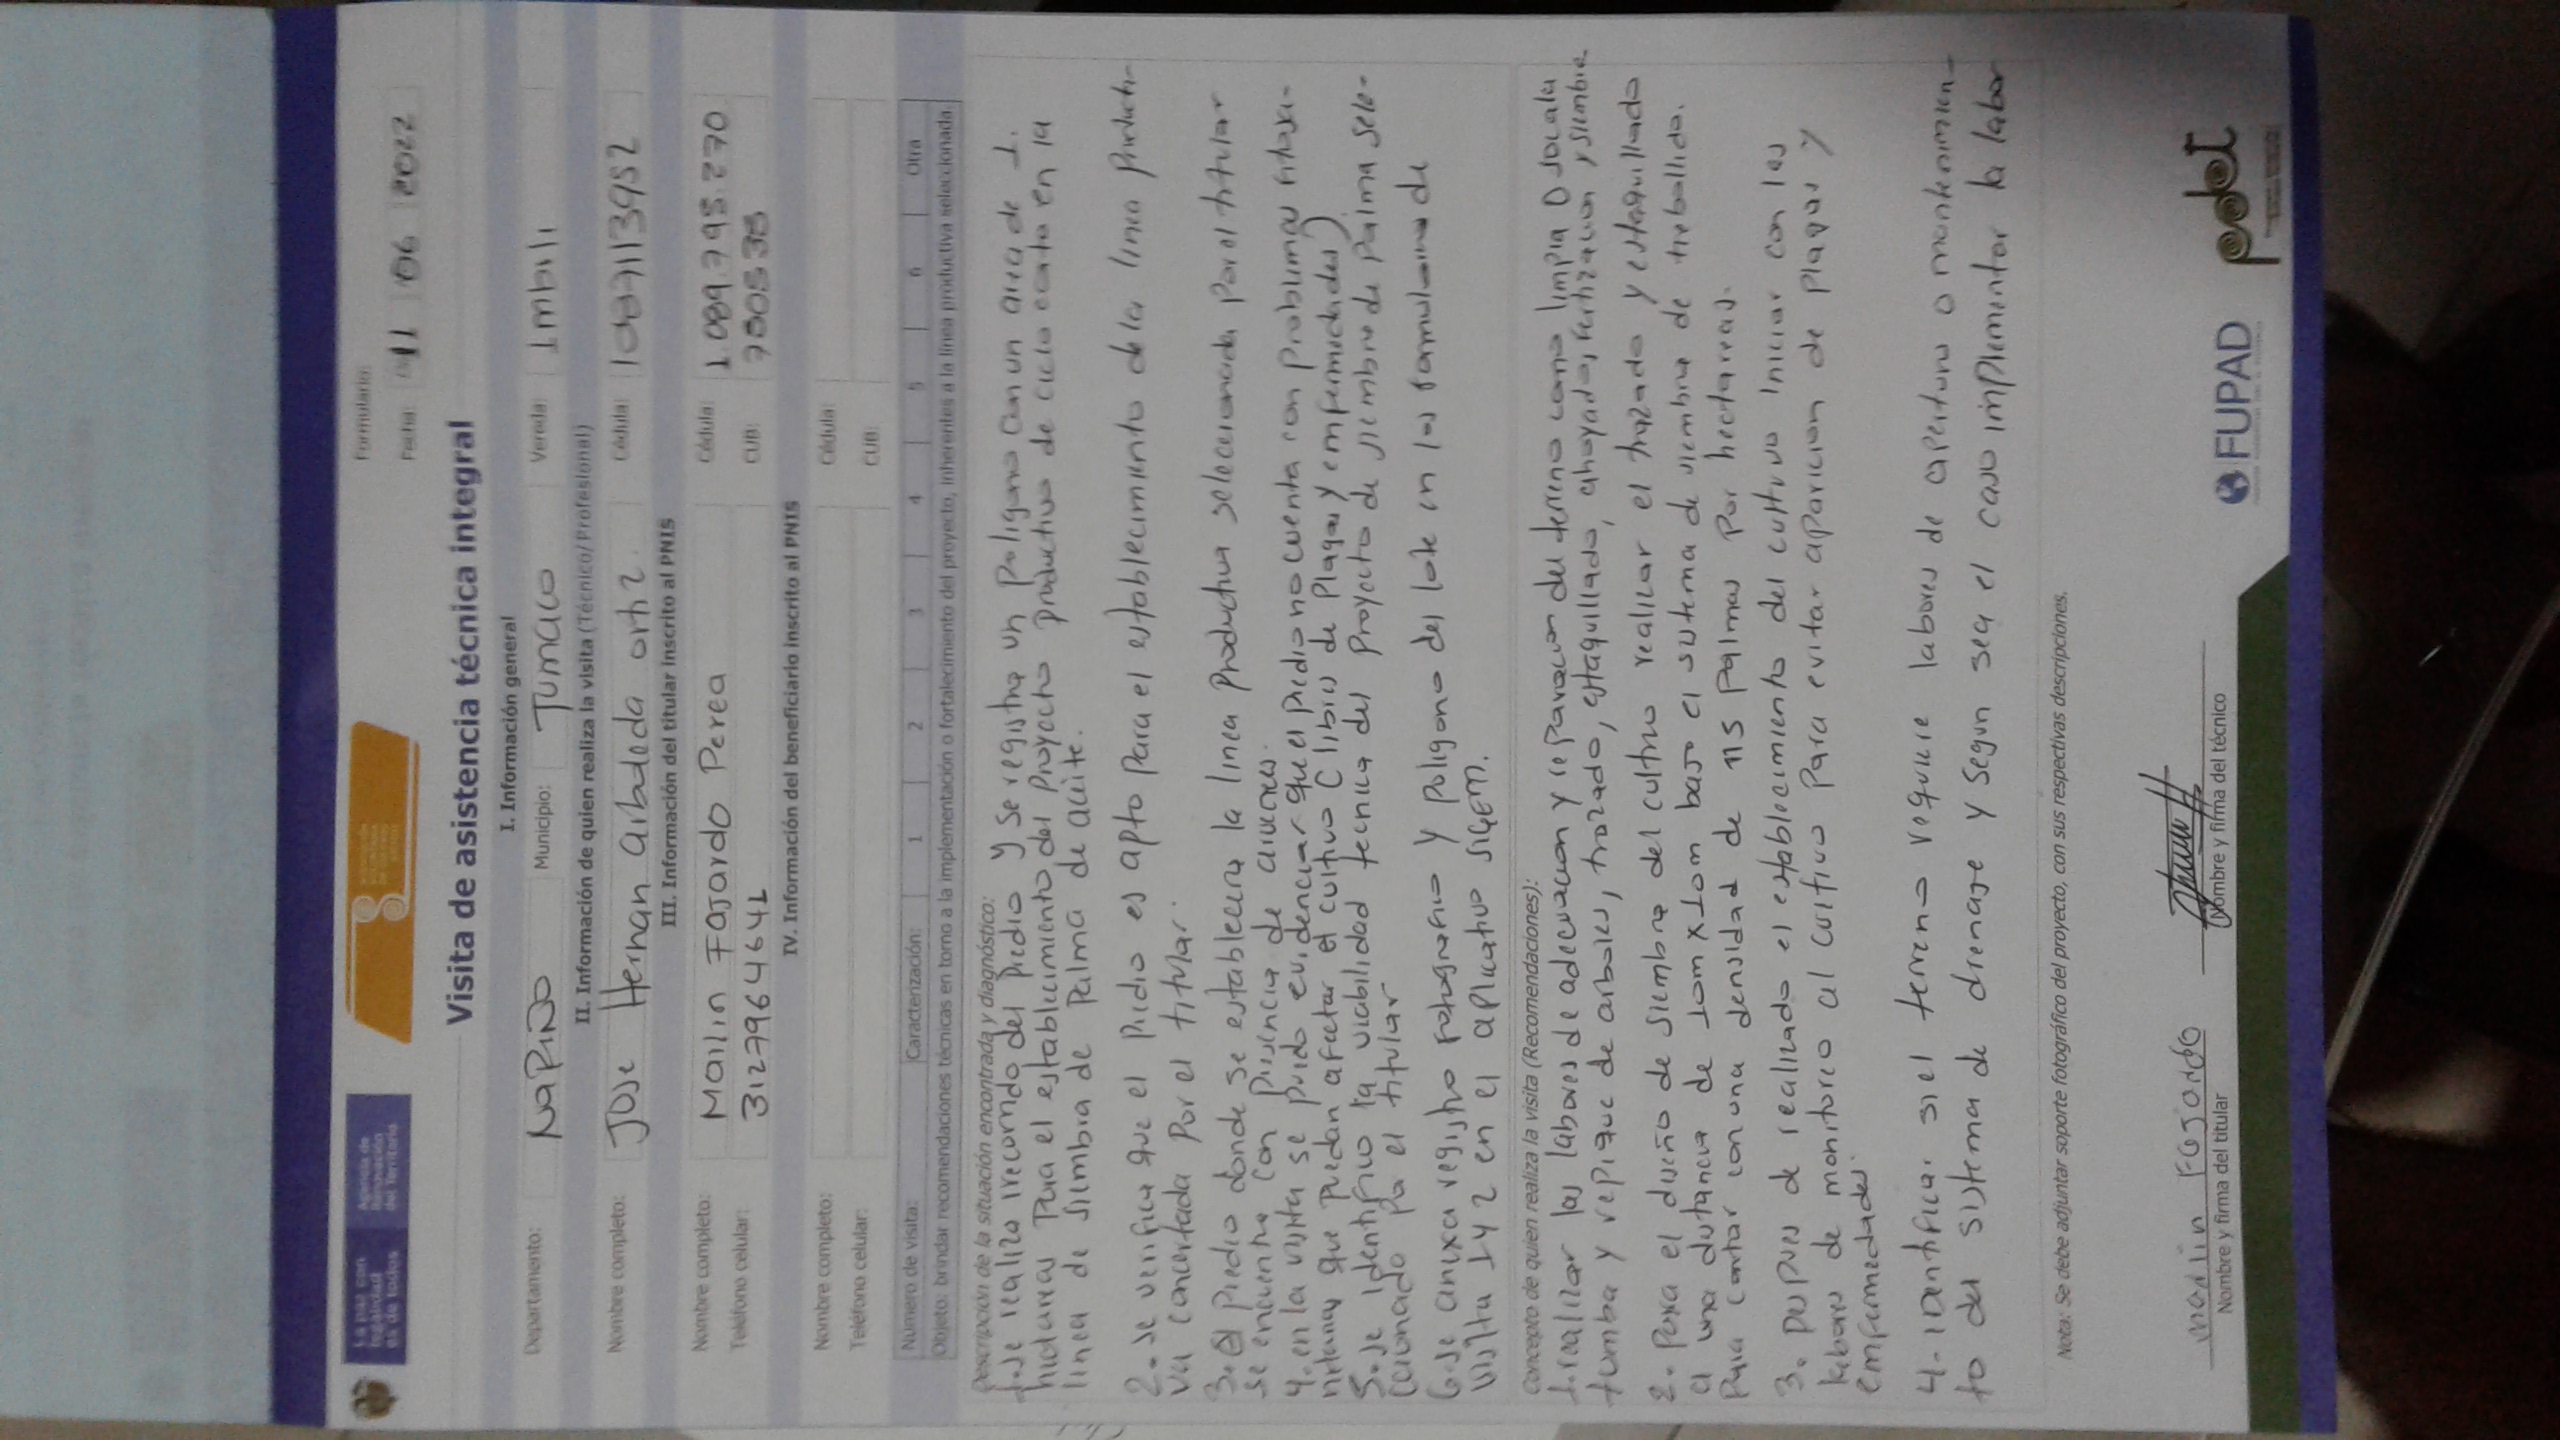 La paz con
legalidad
es de todos
Agencia de
Renovación
del Territorio
Formulario:
Fecha: 11 06 2022
Visita de asistencia técnica integral
I. Información general
Departamento: NaRiÑo Municipio: Tumaco Vereda: Imbili
II. Información de quien realiza la visita (Técnico/Profesional)
Nombre completo: Jose Hernan arboleda ortiz. Cédula: 1087113952
III. Información del titular inscrito al PNIS
Nombre completo: Mailin Fajardo Perea Cédula: 1.089.795.270
Teléfono celular: 3127964641 CUB:
IV. Información del beneficiario inscrito al PNIS
Nombre completo: Cédula:
Teléfono celular: CUB:
Número de visita: Caracterización: 1 2 3 4 5 6 Otra
Objeto: brindar recomendaciones técnicas en torno a la implementación o fortalecimiento del proyecto, inherentes a la línea productiva seleccionada.
Descripción de la situación encontrada y diagnóstico:
1. se realizo recorrido del predio y se registra un poligono con un area de 1.
hectareas para el establecimiento del proyecto productivo de ciclo corto en la
linea de siembra de palma de aceite.
2. se verifica que el predio es apto para el establecimiento de la linea producti-
va concertada por el titular.
3. El predio donde se establecera la linea productiva seleccionada por el titular
se encuentra con presencia de arvenses.
4. en la visita se puedo evidenciar que el predio no cuenta con problemas fitosa-
nitarios que puedan afectar el cultivo (libre de plagas y enfermedades)
5. se identifico la viabilidad tecnica del proyecto de siembra de palma sele-
ccionado por el titular
6. se anexa registro fotografico y poligono del lote en los formularios de
visita 1 y 2 en el aplicativo SIGEM.
Concepto de quien realiza la visita (Recomendaciones):
1. realizar las labores de adecuacion y reparacion del terreno como limpia O socala
tumba y repique de arboles, trazado, estaquillado, ahoyado, fertizacion, y siembra
2. para el diseño de siembra del cultivo realizar el trazado y estaquillado
a una distancia de 10m x 10m bajo el sistema de siembra de tresbolillo.
para contar con una densidad de 115 palmas por hectareas.
3. Despues de realizado el establecimiento del cultivo iniciar con las
labores de monitoreo al cultivo para evitar aparicion de plagas y
enfermedades.
4. identificar si el terreno requiere labores de apertura o mantenimien-
to del sistema de drenaje y segun sea el caso implementar la labor
Nota: Se debe adjuntar soporte fotográfico del proyecto, con sus respectivas descripciones.
mailin Fajardo
Nombre y firma del titular
Nombre y firma del técnico
FUPAD
pdet